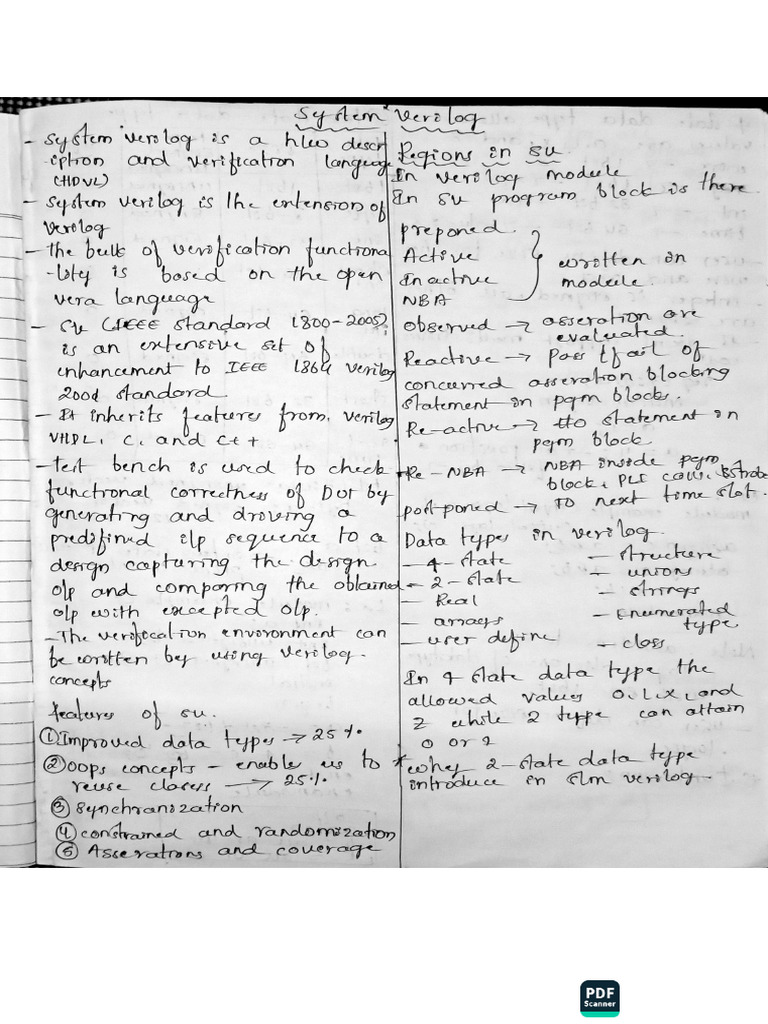 System Verilog
- System verilog is a h/w descr
-iption and verification language
(HDVL)
- System verilog is the extension of
verilog
- The bulk of verification functiona
-lity is based on the open
vera language
- SV (IEEE standard 1800-2005)
is an extensive set of
enhancement to IEEE 1364 verilog
2001 standard
- It inherits features from verilog
VHDL, C, and C++
- Test bench is used to check
functional correctness of DUT by
generating and driving a
predifined i/p sequence to a
design capturing the design
o/p and comparing the obtained
o/p with excepted o/p.
- The verification environment can
be written by using verilog.
concepts
features of SV.
① Improved data types → 25%
② OOPS concepts - enable us to
reuse classes → 25%
③ Synchranization
④ constrained and randomization
⑤ Asserations and coverage
Regions in SV
In verilog module
In SV program block is there
preponed.
Active
Inactive
NBA
written in
module.
Observed → asseration are
evaluated.
Reactive → pass & fail of
concurred asseration blocking
statement in pgm blocks.
Re-active → #0 statement in
pgm block
Re-NBA → NBA inside pgm
block, PLI call, $strobe
post-poned → TO next time slot.
Data types in verilog
- 4-state
- 2-state
- Real
- arrays
- user define
- structure
- unions
- strings
- Enumerated
type
- class
In 4 state data type the
allowed values 0, 1, x, and
Z while 2 type can attain
0 or 1
* why 2-state data type
introduce in s/m verilog.
PDF
Scanner